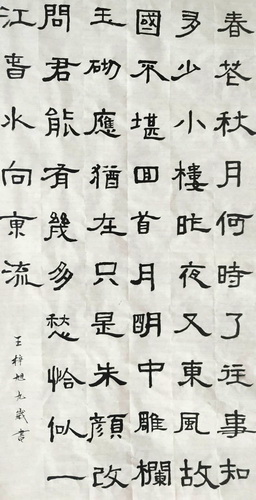 春花秋月何時了往事知
多少小樓昨夜又東風故
國不堪回首月明中雕欄
玉砌應猶在只是朱顏改
問君能有幾多愁恰似一
江春水向東流
王梓旭九歲書